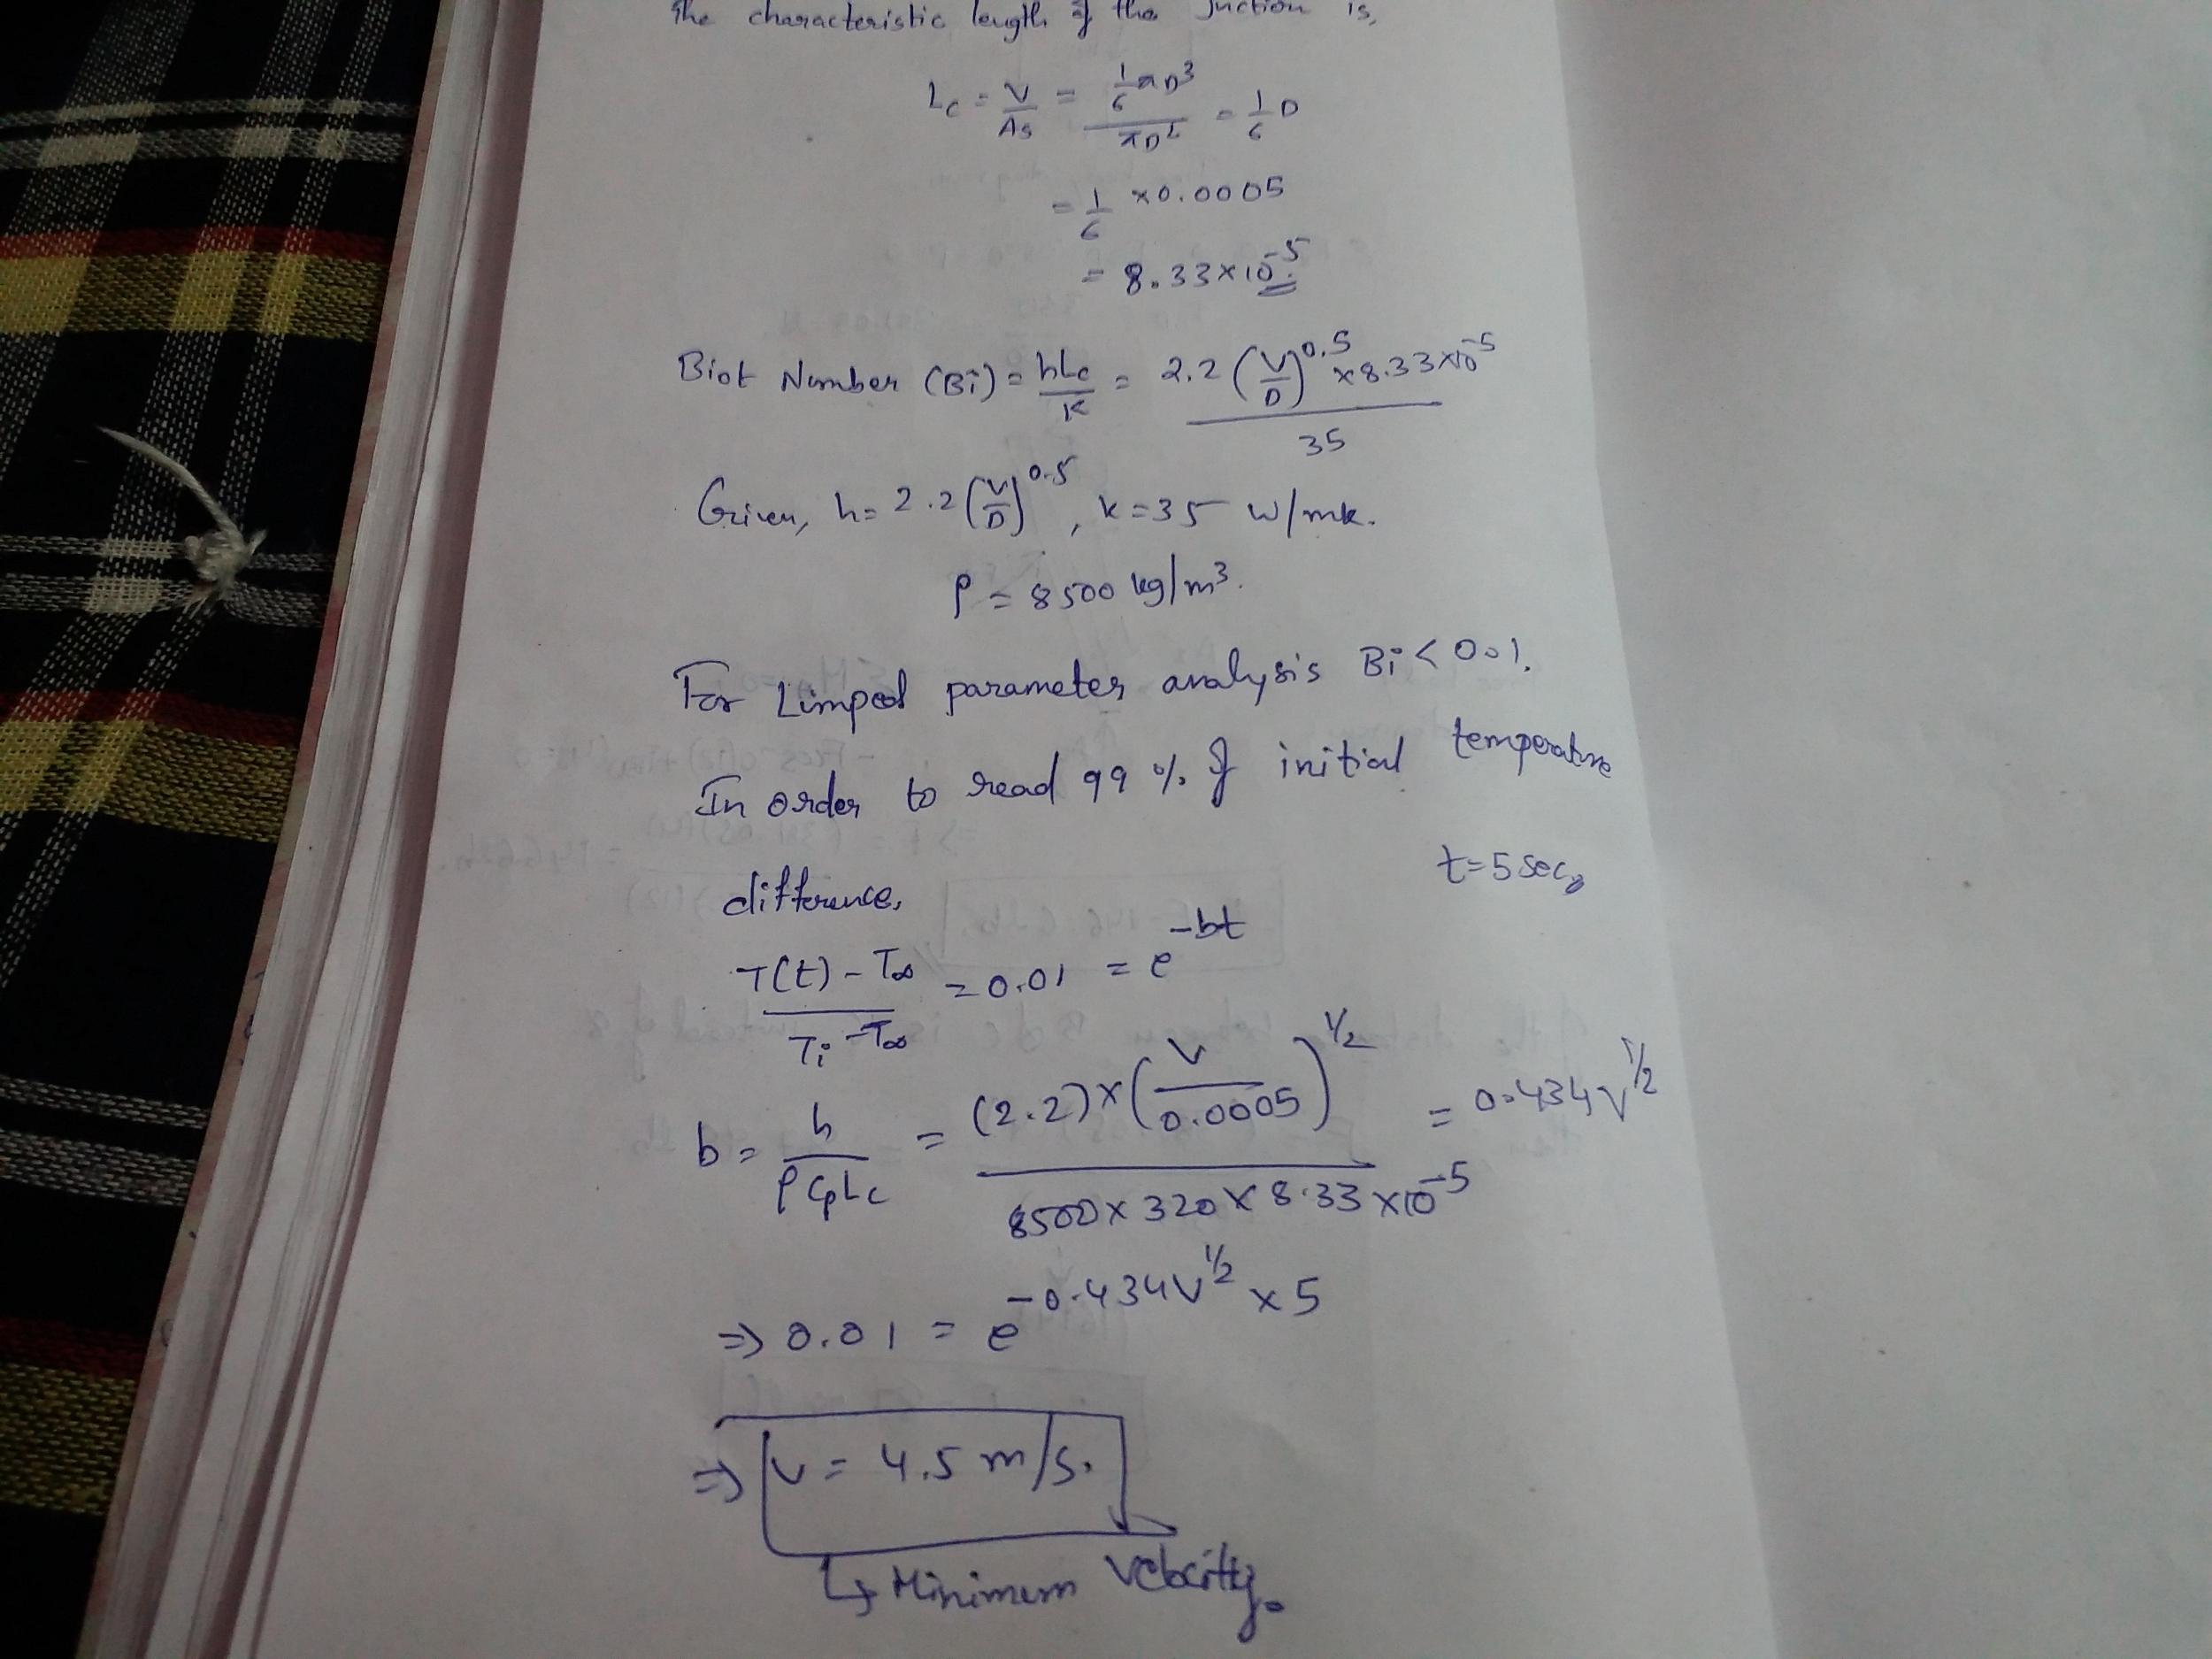 The characteristic length of the Juction is,
Lc = V/As = (1/6 πD³)/(πD²) = 1/6 D
= 1/6 × 0.0005
= 8.33×10⁻⁵
Biot Number (Bi) = hLc/K = (2.2 (V/D)^0.5 × 8.33×10⁻⁵)/35
Given, h = 2.2 (V/D)^0.5, k = 35 W/mk.
ρ = 8500 kg/m³.
For Limped parameter analysis Bi < 0.1.
In order to read 99 % of initial temperature
difference,
t = 5 sec,
(T(t) - T∞)/(Ti - T∞) = 0.01 = e^(-bt)
b = h/(ρCpLc) = ((2.2) × (V/0.0005)^(1/2))/(8500 × 320 × 8.33 × 10⁻⁵) = 0.434 V^(1/2)
⇒ 0.01 = e^(-0.434V^(1/2) × 5)
⇒ V = 4.5 m/s.
↳ Minimum Velocity.